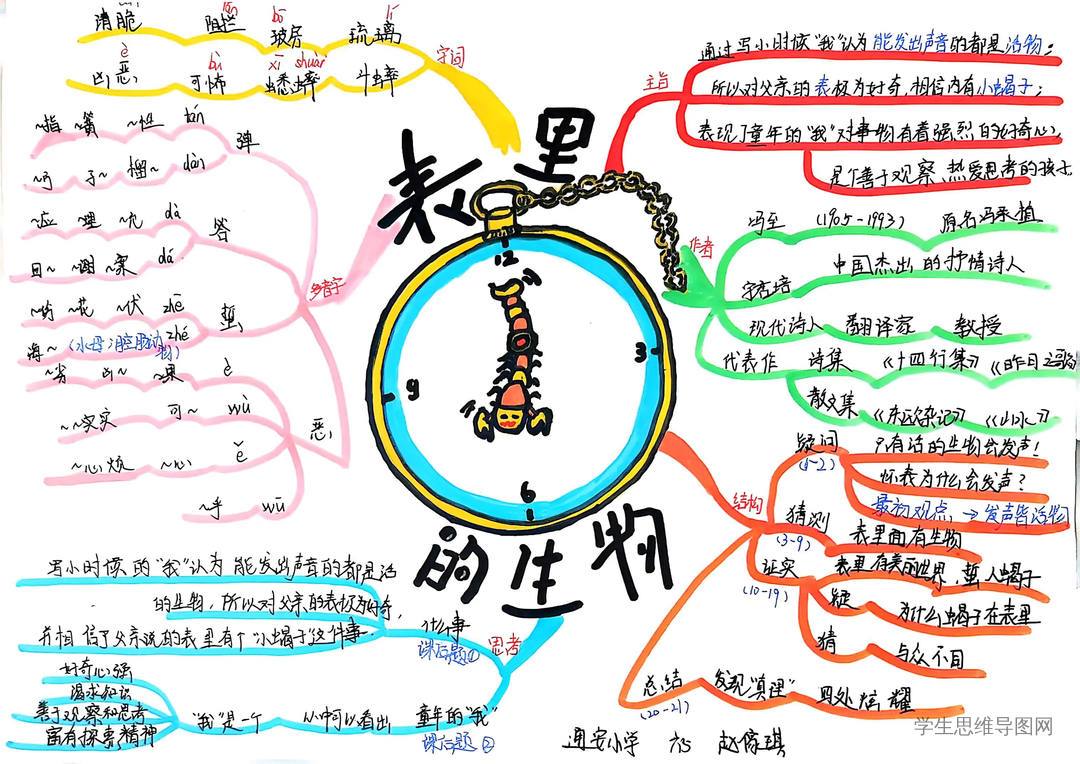 表里
的生物
12
3
6
9
字词
清脆
阻拦
bō
玻房
lí
琉璃
è
凶恶
bù
可怖
xī shuài
蟋蟀
斗蟀
多音字
弹
tán
~指 ~簧 ~性
dàn
子~ 榴~
答
dā
~应 ~理
dá
回~ ~谢 ~案
蜇
zhē
zhé
海~ (水母)腔肠动物
恶
è
~劣 凶~ ~果
wù
~~实实 可~
ě
~心烦 ~心
wū
~乎
主旨
通过写小时候"我"认为能发出声音的都是活物;
所以对父亲的表极为好奇,相信内有小蝎子;
表现了童年的"我"对事物有着强烈的好奇心,
是个善于观察、热爱思考的孩子
作者
冯至 (1905-1993) 原名冯承植
字君培 中国杰出的抒情诗人
现代诗人 翻译家 教授
代表作 诗集 《十四行集》 《昨日之歌》
散文集 《东欧杂记》 《山水》
结构
疑问
(1-2)
?有活的生物会发声!
怀表为什么会发声?
最初观点 → 发声皆活物
猜测
(3-9)
表里面有生物
证实
(10-19)
表里有美丽世界,蜇人蝎子
疑
为什么蝎子在表里
猜
与众不同
总结
(20-21)
发现"真理" 四处炫耀
思考
什么事
课后题①
写小时候的"我"认为能发出声音的都是活
的生物,所以对父亲的表极为好奇,
并相信了父亲说的表里有个"小蝎子"这件事.
童年的"我"
课后题②
从中可以看出
"我"是一个
好奇心强
渴求知识
善于观察和思考
富有探索精神
通安小学
学生思维导图网